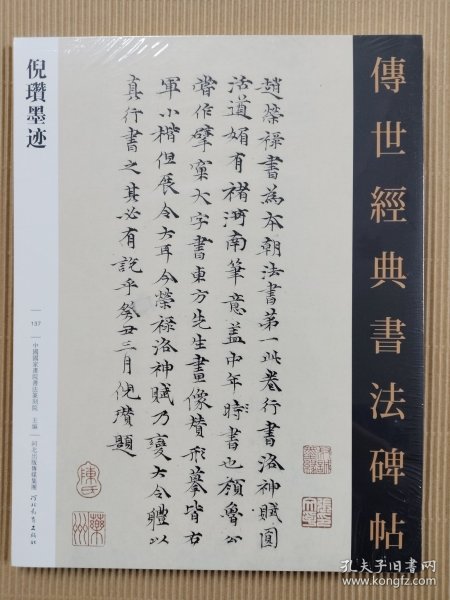 傳世經典書法碑帖
趙榮祿書為本朝法書第一此卷行書洛神賦圓
活遒媚有褚河南筆意蓋中年時書也顏魯公
嘗作擘窠大字書東方先生畫像贊形摹皆右
軍小楷但展令大耳今榮祿洛神賦乃變大令體以
真行書之其必有說乎癸丑三月倪瓚題
倪瓚墨迹
137
中國國家畫院書法篆刻院 主編
河北出版傳媒集團
河北教育出版社
孔夫子旧书网
www.kongfz.com